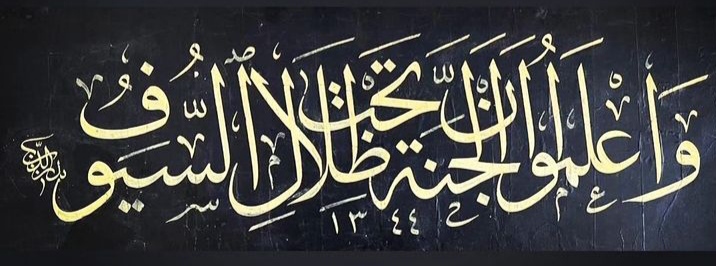 واعلموا أن الجنة تحت ظلال السيوف
١٣٤٤